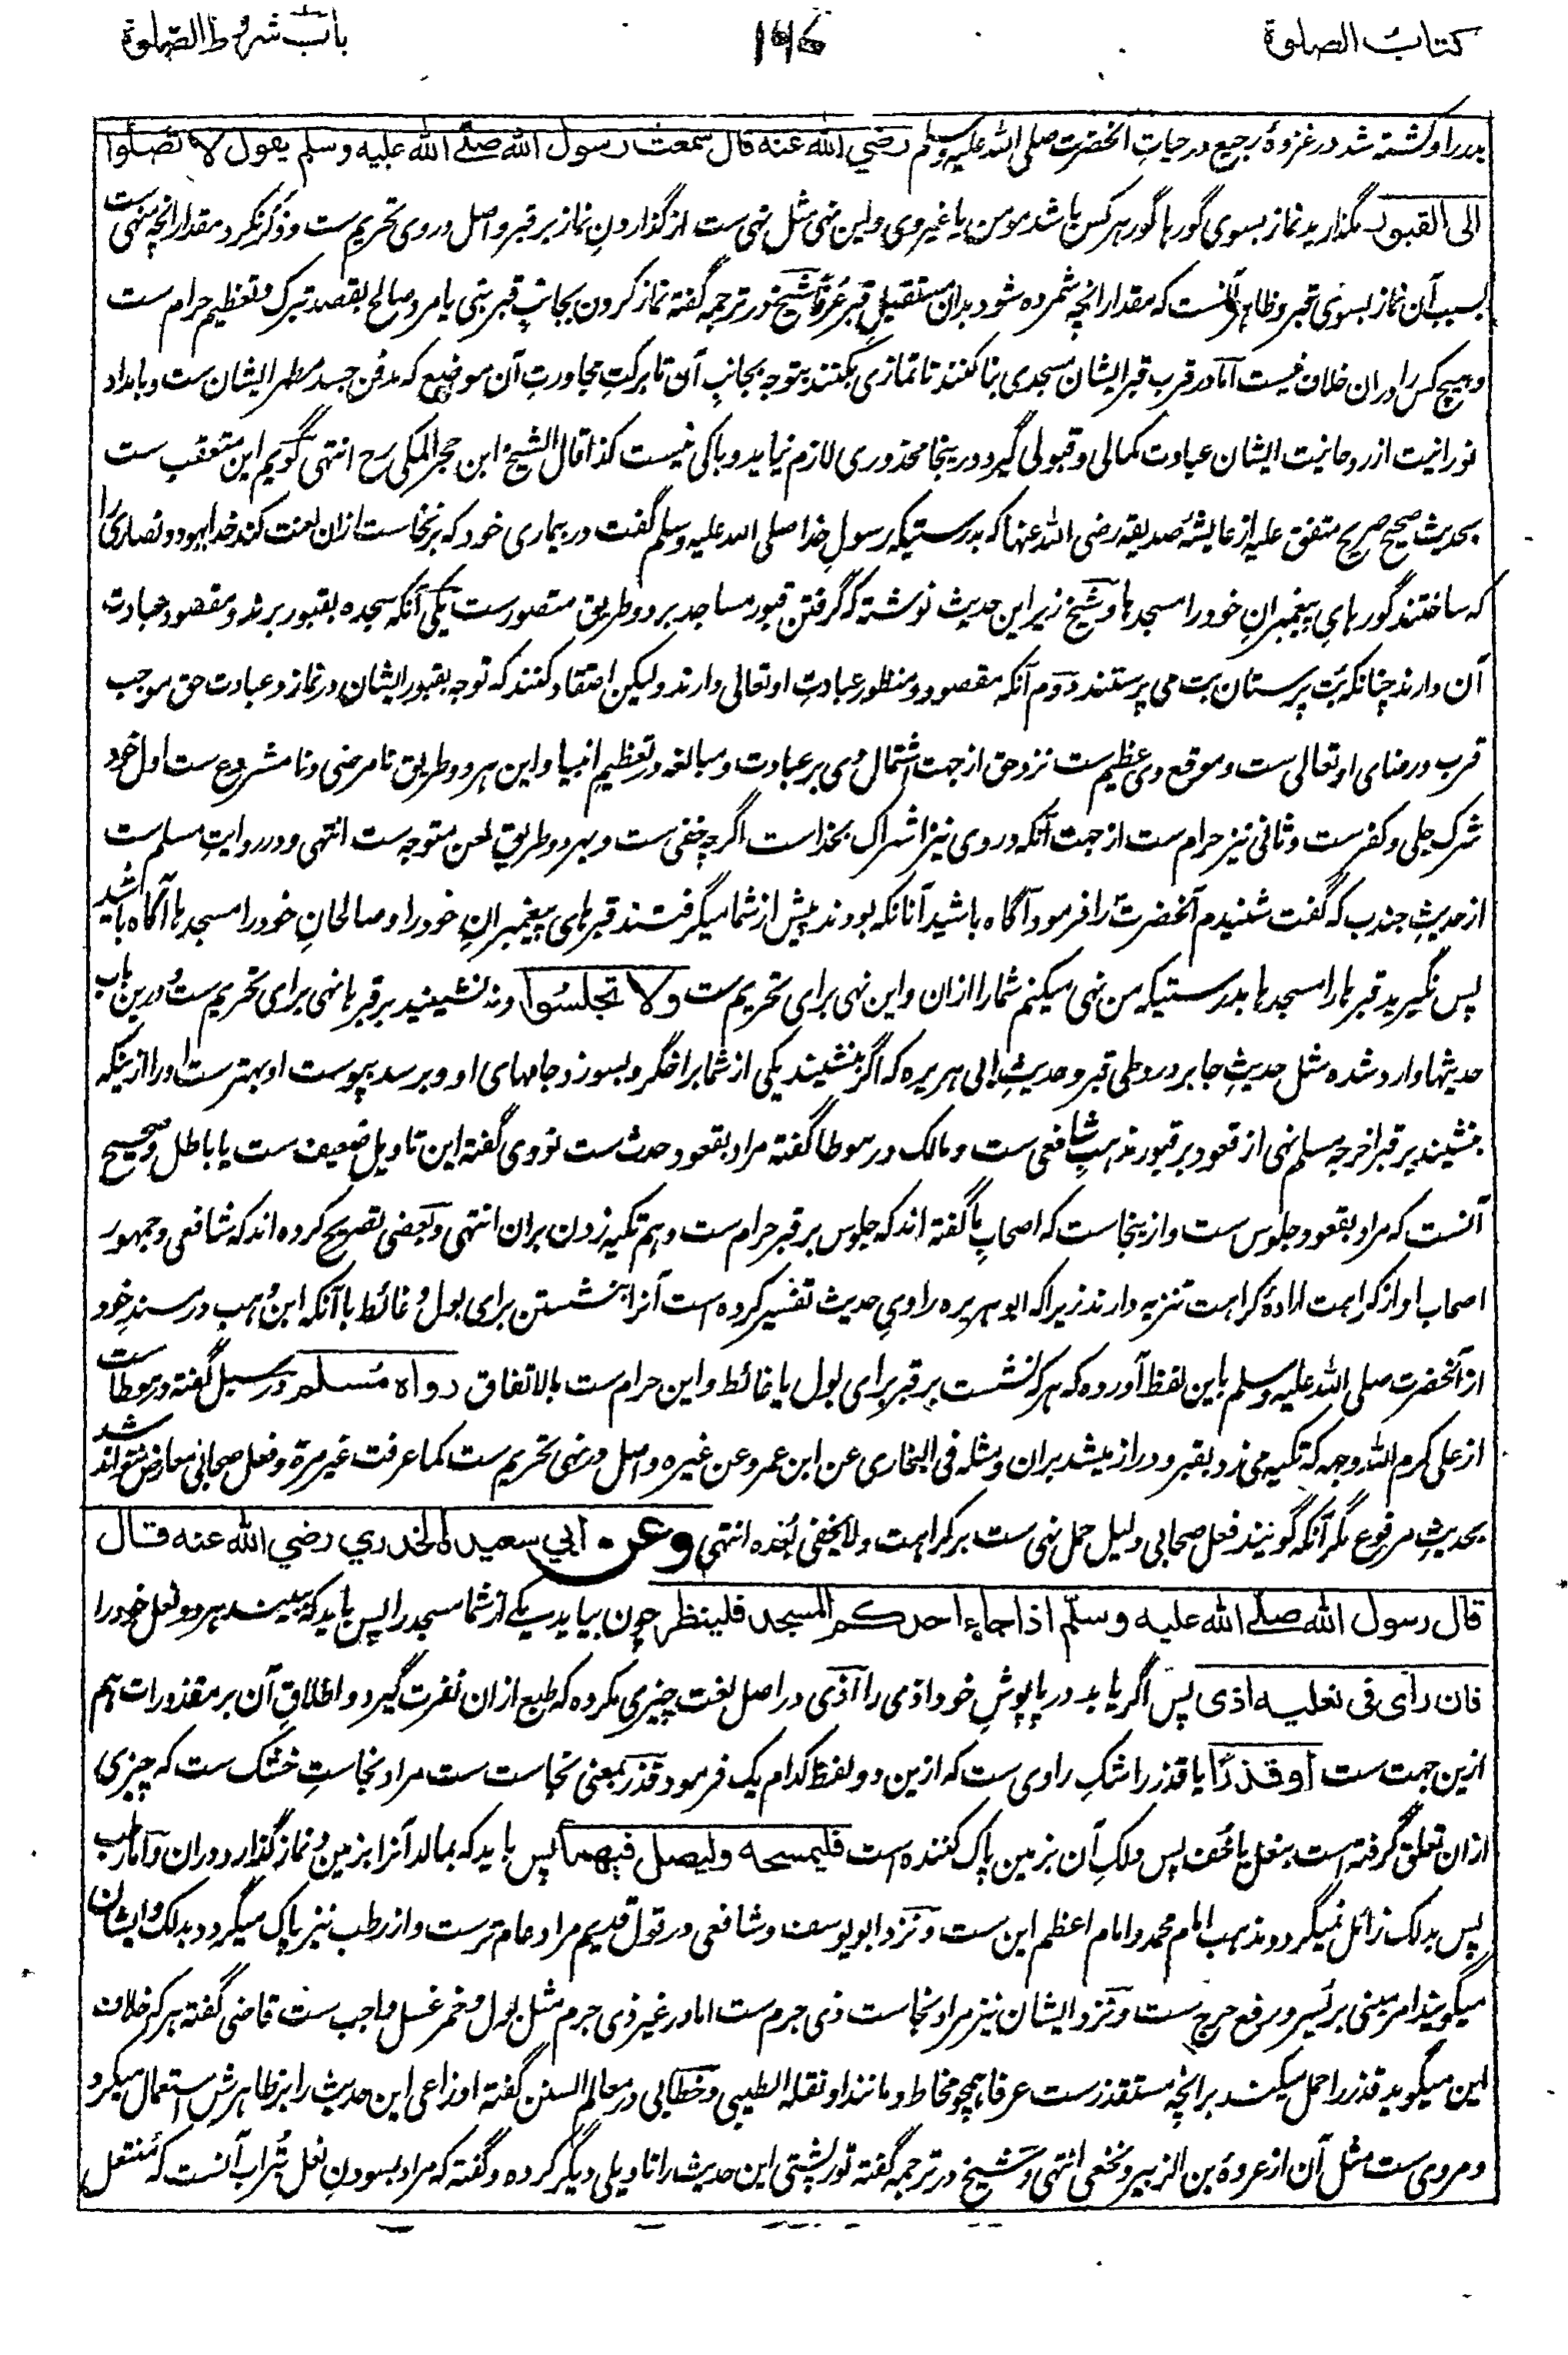 کتاب الصلوة
۱۴۶
باب شروط الصلوة
بدر را و کشته شد در غزوهٔ رجیع در حیات آنحضرت صلی الله علیه وسلم رضي الله عنه قال سمعت رسول الله صلّے الله علیه وسلم یقول لا تصلّوا
الی القبور مگذارید نماز بسوی گورها گور هر کس باشد مومن یا غیر وی و این نهی مثل نهی ست از گذاردن نماز بر قبر و اصل در وی تحریم ست و ذکر نکرد مقدار آنچه منهی ست
بسبب آن نماز بسوی قبر و ظاهر آنست که مقدار آنچه شمرده شود بدان مستقبل قبر عرفاً شیخ در ترجمه گفته نماز کردن بجانب قبر نبی یا مرد صالح بقصد تبرک و تعظیم حرام ست
و هیچ کس را دران خلاف نیست اما در قرب قبر ایشان مسجدی بنا کنند تا نمازی بکنند بتوجه بجانب آن تا برکت مجاورت آن موضع که مدفن جسد مطهر ایشان ست و بامداد
نورانیت از روحانیت ایشان عبادت کمالی و قبولی گیرد درینجا محذوری لازم نیاید و باکی نیست کذا قال الشیخ ابن حجر المکی رح انتهی گویم این متعقب ست
بحدیث صحیح صریح متفق علیه از عایشهٔ صدیقه رضی الله عنها که بدرستیکه رسول خدا صلی الله علیه وسلم گفت در بیماری خود که برنخاست ازان لعنت کند خدا یهود و نصاری را
که ساختند گورهای پیغمبران خود را مسجدها و شیخ زیر این حدیث نوشته که گرفتن قبور مساجد بر دو طریق متصورست یکی آنکه سجده بقبور برند و مقصود عبادت
آن دارند چنانکه بت پرستان بت می پرستند دوم آنکه مقصود و منظور عبادت او تعالی دارند ولیکن اعتقاد کنند که توجه بقبور ایشان در نماز و عبادت حق موجب
قرب و رضای او تعالی ست و موقع وی عظیم ست نزد حق از جهت اشتمال وی بر عبادت و مبالغه در تعظیم انبیا و این هر دو طریق نامرضی و نامشروع ست اول خود
شرک جلی و کفرست و ثانی نیز حرام ست از جهت آنکه در وی نیز اشراک بخداست اگرچه خفی ست و بهر دو طریق لعن متوجه ست انتهی و در روایت مسلم ست
از حدیث جندب که گفت شنیدم آنحضرت را فرمود آگاه باشید آنانکه بودند پیش از شما میگرفتند قبرهای پیغمبران خود را و صالحان خود را مسجدها آگاه باشید
پس نگیرید قبرها را مسجدها بدرستیکه من نهی میکنم شما را ازان و این نهی برای تحریم ست ولا تجلسوا و نه نشینید بر قبرها نهی برای تحریم ست و درین باب
حدیثها وارد شده مثل حدیث جابر در وطی قبر و حدیث ابی هریره که اگر بنشیند یکی از شما بر اخگر و بسوزد جامهای او و برسد بپوست او بهترست او را از اینکه
بنشیند بر قبر اخرجه مسلم نهی از قعود بر قبور مذهب شافعی ست و مالک در موطا گفته مراد بقعود حدث ست نووی گفته این تاویل ضعیف ست یا باطل و صحیح
آنست که مراد بقعود جلوس ست و ازینجاست که اصحاب ما گفته اند که جلوس بر قبر حرام ست و هم تکیه زدن بران انتهی و بعضی تصریح کرده اند که شافعی و جمهور
اصحاب او از کراهت ارادهٔ کراهت تنزیه دارند زیرا که ابو هریره راوی حدیث تفسیر کرده است آنرا بنشستن برای بول و غائط با آنکه ابن وهب در سند خود
از آنحضرت صلی الله علیه وسلم باین لفظ آورده که هر که نشست بر قبر برای بول یا غائط و این حرام ست بالاتفاق رواه مُسلم در سبل گفته در موطا ست
از علی کرم الله وجهه که تکیه می زد بقبر و دراز میشد بران و مثله فی البخاری عن ابن عمر و عن غیره و اصل در نهی تحریم ست کما عرفت غیر مرة و فعل صحابی معارض نتواند شد
بحدیث مرفوع مگر آنکه گویند فعل صحابی دلیل حمل نهی ست بر کراهت ولا یخفی بُعده انتهی وعن ابي سعید الخدري رضي الله عنه قال
قال رسول الله صلّے الله علیه وسلّم اذا جاء احدکم المسجد فلینظر چون بیاید یکے از شما مسجد را پس باید که ببیند هر دو نعل خود را
فان رأی فی نعلیه اذی پس اگر یابد در پاپوش خود اذی را اَذی در اصل لغت چیزی مکروه که طبع ازان نفرت گیرد و اطلاق آن بر مقذورات هم
ازین جهت ست او قذرًا یا قذر را شک راوی ست که ازین دو لفظ کدام یک فرمود قذر بمعنی نجاست ست مراد نجاست خشک ست که چیزی
ازان تعلق گرفته است بنعل یا خف پس دلک آن بزمین پاک کننده است فلیمسحه ولیصل فیهما پس باید که بمالد آنرا بزمین و نماز گذارد دران و اما رطب
پس بدلک زائل نمیگردد و مذهب امام محمد و امام اعظم این ست و نزد ابو یوسف و شافعی در قول قدیم مراد عام ترست و از رطب نیز پاک میگردد بدلک و ایشان
میگویند امر مبنی بر یُسر و رفع حرج ست و نزد ایشان نیز مراد نجاست ذی جرم ست اما در غیر ذی جرم مثل بول و خمر غسل واجب ست قاضی گفته هر که خلاف
این میگوید قذر را حمل میکند بر آنچه مستقذرست عرفا همچو مخاط و مانند او نقله الطیبی و خطابی در معالم السنن گفته اوزاعی این حدیث را بر ظاهرش استعمال میکرد
و مروی ست مثل آن از عروهٔ بن الزبیر و نخعی انتهی و شیخ در ترجمه گفته تورپشتی این حدیث را تاویلی دیگر کرده و گفته که مراد بسودن نعل بتراب آنست که منتعل